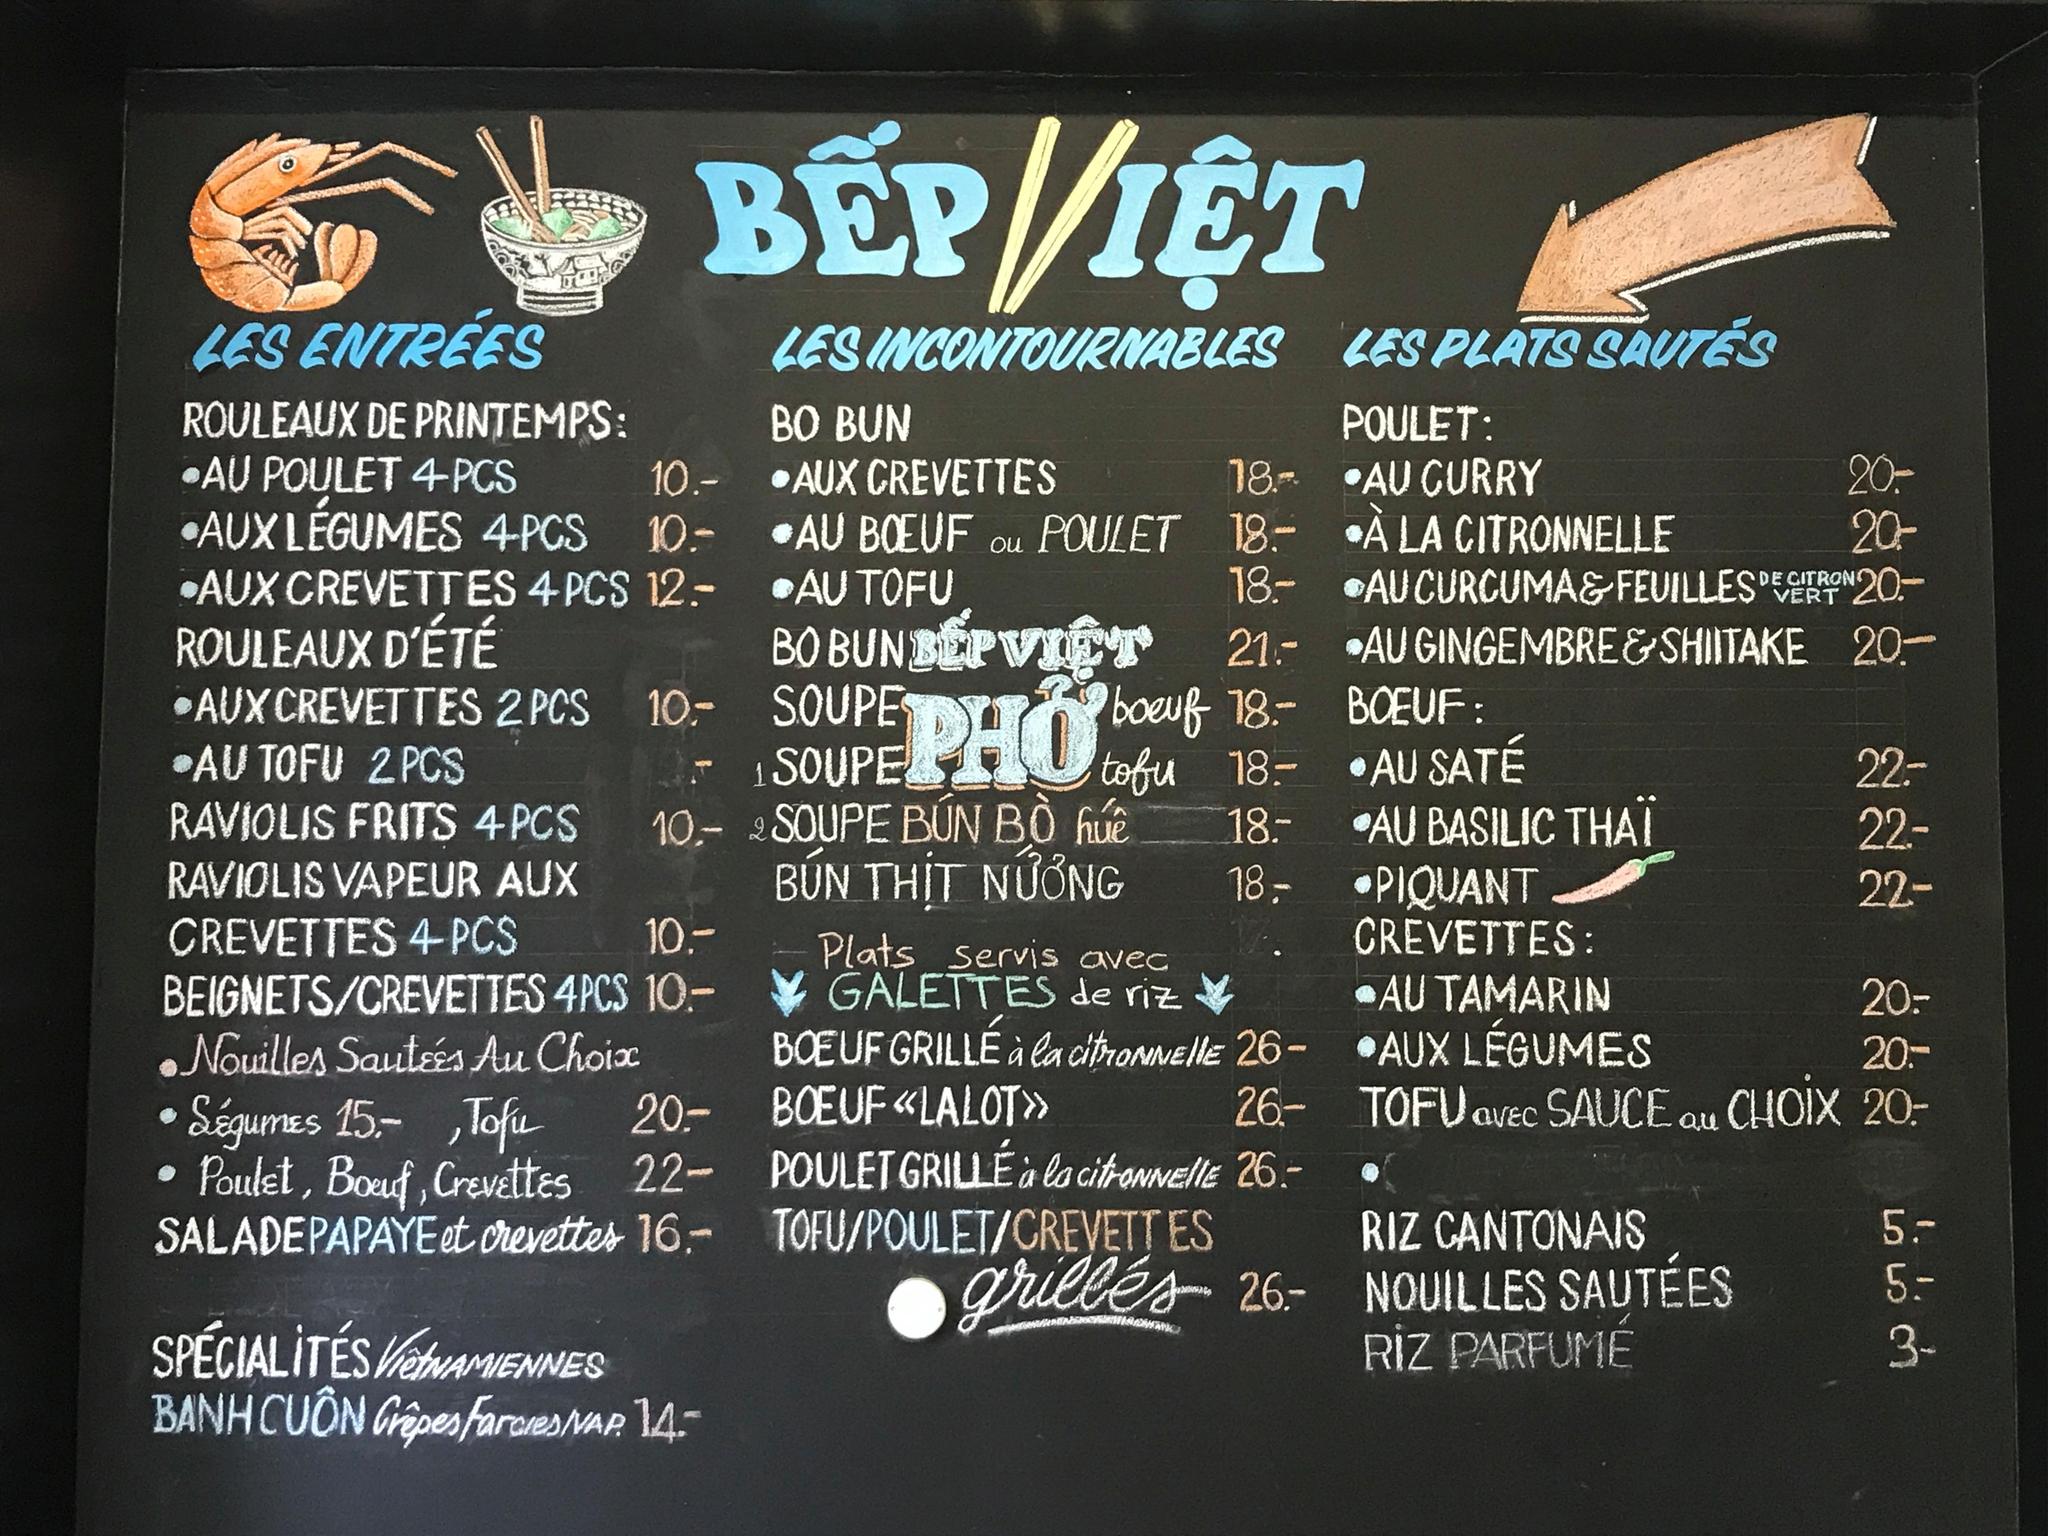 BẾP VIỆT
LES ENTRÉES
ROULEAUX DE PRINTEMPS:
•AU POULET 4 PCS 10.-
•AUX LÉGUMES 4 PCS 10.-
•AUX CREVETTES 4 PCS 12.-
ROULEAUX D'ÉTÉ
•AUX CREVETTES 2 PCS 10.-
•AU TOFU 2 PCS .-
RAVIOLIS FRITS 4 PCS 10.-
RAVIOLIS VAPEUR AUX
CREVETTES 4 PCS 10.-
BEIGNETS/CREVETTES 4 PCS 10.-
• Nouilles Sautéés Au Choix
• Légumes 15.- , Tofu 20.-
• Poulet, Bœuf, Crevettes 22.-
SALADE PAPAYE et crevettes 16.-
SPÉCIALITÉS ViêtNAMIENNES
BANH CUÔN Crêpes Farcies VAP. 14.-
LES INCONTOURNABLES
BO BUN
•AUX CREVETTES 18.-
•AU BŒUF ou POULET 18.-
•AU TOFU 18.-
BO BUN BẾP VIỆT 21.-
SOUPE PHỞ boeuf 18.-
1 SOUPE PHỞ tofu 18.-
2 SOUPE BÚN BÒ húê 18.-
BÚN THỊT NƯỚNG 18.-
Plats servis avec
GALETTES de riz
BŒUF GRILLÉ à la citronnelle 26-
BŒUF «LALOT» 26.-
POULET GRILLÉ à la citronnelle 26.-
TOFU/POULET/CREVETTES
grillés 26.-
LES PLATS SAUTÉS
POULET:
•AU CURRY 20.-
•À LA CITRONNELLE 20.-
•AU CURCUMA & FEUILLES DE CITRON VERT 20.-
•AU GINGEMBRE & SHIITAKE 20.-
BŒUF:
•AU SATÉ 22.-
•AU BASILIC THAÏ 22.-
•PIQUANT 22.-
CREVETTES:
•AU TAMARIN 20.-
•AUX LÉGUMES 20.-
TOFU avec SAUCE au CHOIX 20.-
•
RIZ CANTONAIS 5.-
NOUILLES SAUTÉES 5.-
RIZ PARFUMÉ 3-